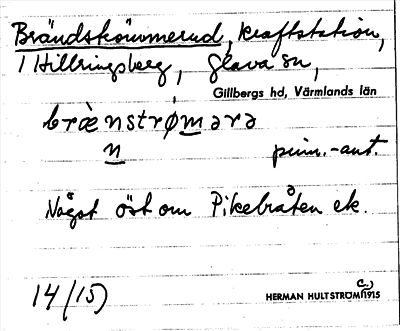 Brändskönmerud, kraftstation,
i Hillringsberg, Glava sn,
Gillbergs hd, Värmlands län
bræ̀nstrømərə
n prim.-ant.
Något öst om Pikebråten ek.
14/15)
HERMAN HULTSTRÖM 1915